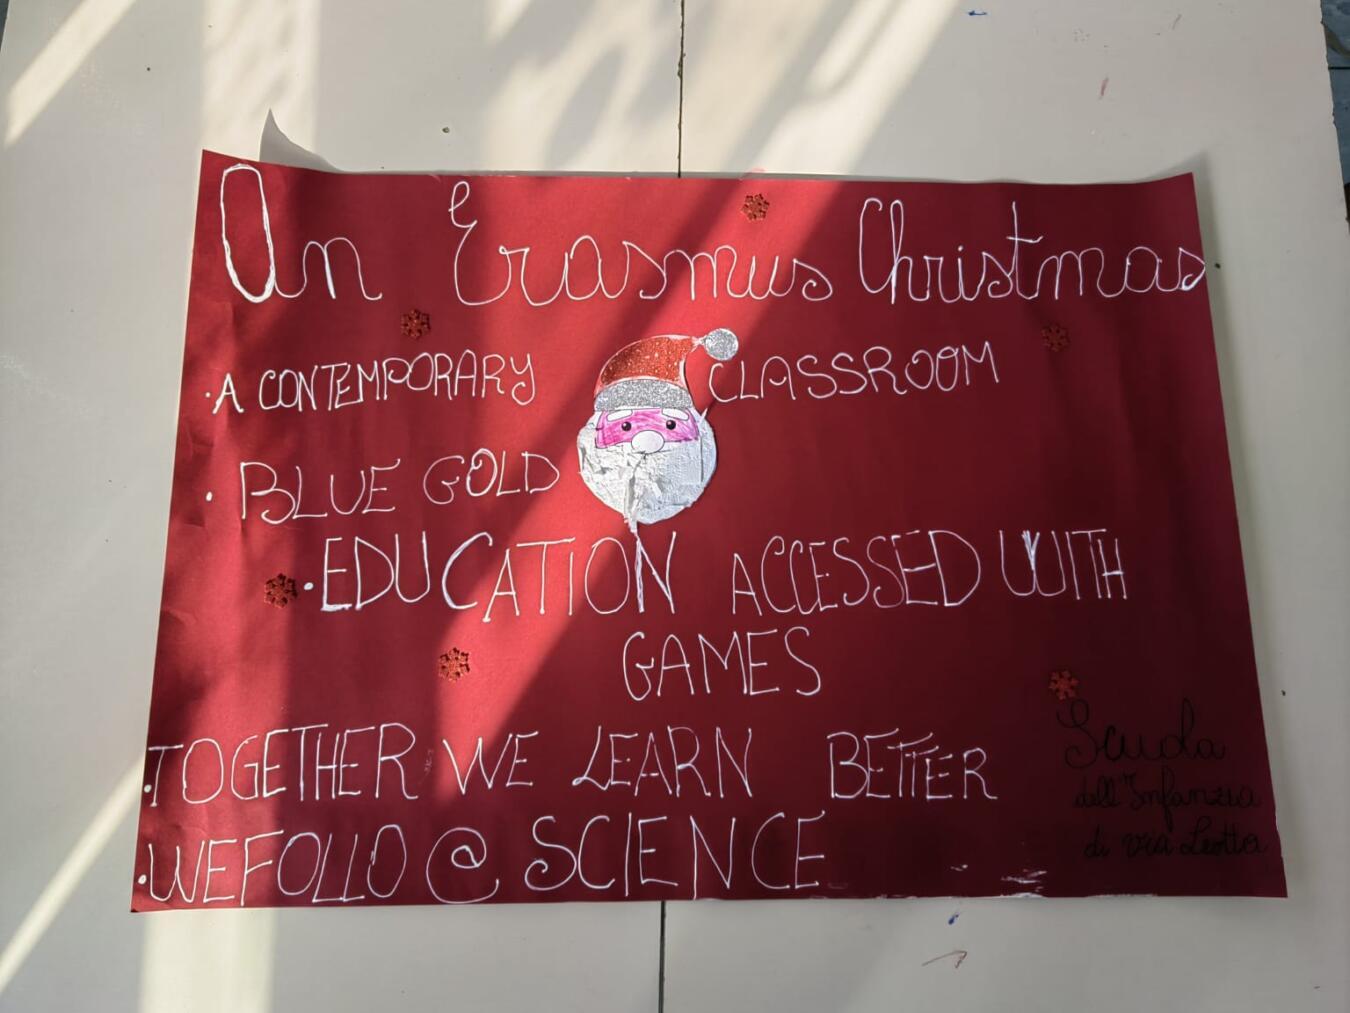 An Erasmus Christmas
· A CONTEMPORARY CLASSROOM
· BLUE GOLD
· EDUCATION ACCESSED WITH
GAMES
· TOGETHER WE LEARN BETTER
· WEFOLLO@ SCIENCE
Scuola
dell'Infanzia
di via Leotta